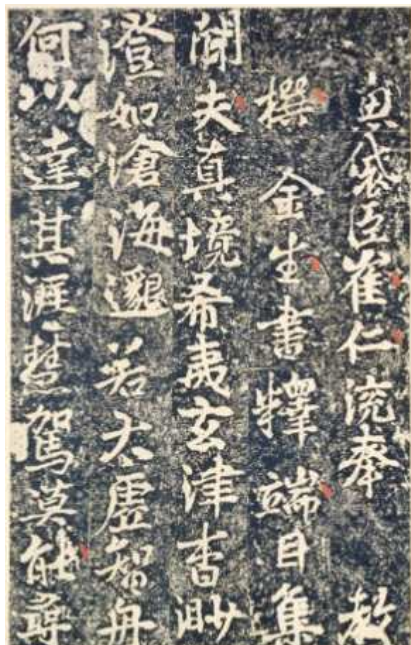 魚袋臣崔仁渷奉 教
撰 金生書釋端目集
聞夫真境希夷玄津杳眇
澄如滄海邈若太虛智舟
何以達其涯慧駕莫能尋